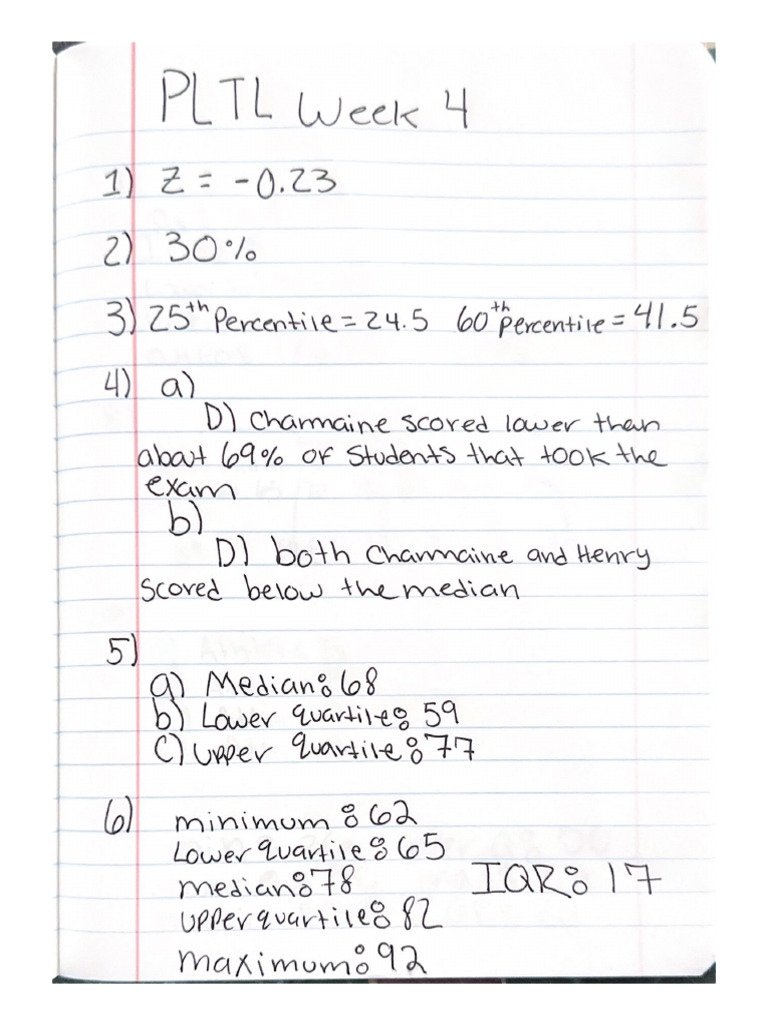 PLTL Week 4
1) Z = -0.23
2) 30%
3) 25th Percentile = 24.5 60th percentile = 41.5
4) a)
D) Charmaine scored lower than
about 69% of Students that took the
exam
b)
D) both Charmaine and Henry
Scored below the median
5)
a) Median: 68
b) Lower quartile: 59
c) Upper quartile: 77
6) minimum: 62
Lower quartile: 65
median: 78 IQR: 17
upper quartile: 82
maximum: 92